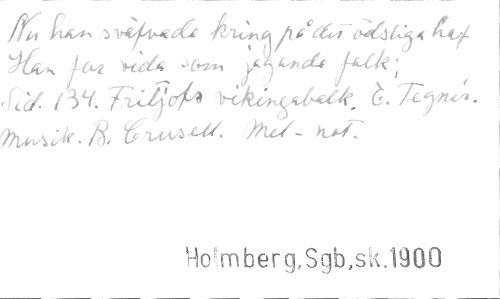 Nu han sväfvade kring på det ödsliga haf
Han for vida som jagande falk;
Sid. 134. Fritjofs vikingabalk. E. Tegnér.
Musik. B. Crusell. Mel-not.
Holmberg,Sgb,sk.1900